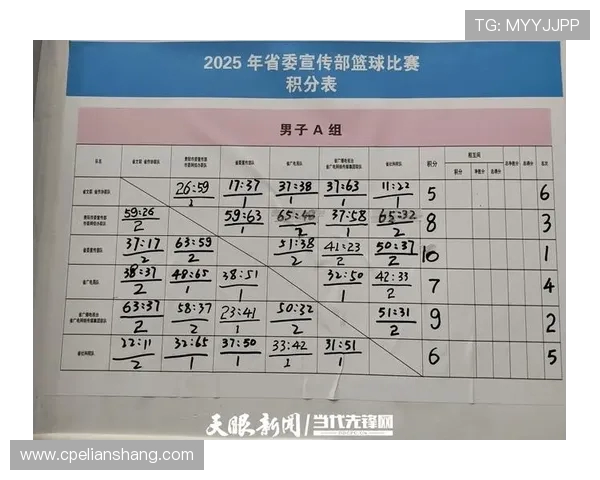 TG: MYYJJPP
2025 年省委宣传部篮球比赛
积分表
男子 A 组
队名 积分 相互间 名次
积分 净胜分 总得分 总净胜分 总得分
26:59 17:37 37:38 37:63 11:22 5 6
1 1 1 1 1
59:26 59:63 65:48 37:58 65:32 8 3
2 1 2 1 2
37:17 63:59 51:38 41:23 50:37 10 1
2 2 2 2 2
省广电局队 38:37 48:65 38:51 32:50 42:33 7 4
2 1 1 1 2
63:37 58:37 23:41 50:32 51:31 9 2
2 2 1 2 2
省社科院队 22:11 32:65 37:50 33:42 31:51 6 5
2 1 1 1 1
天眼新闻 当代先锋网
www.cpelianshang.com